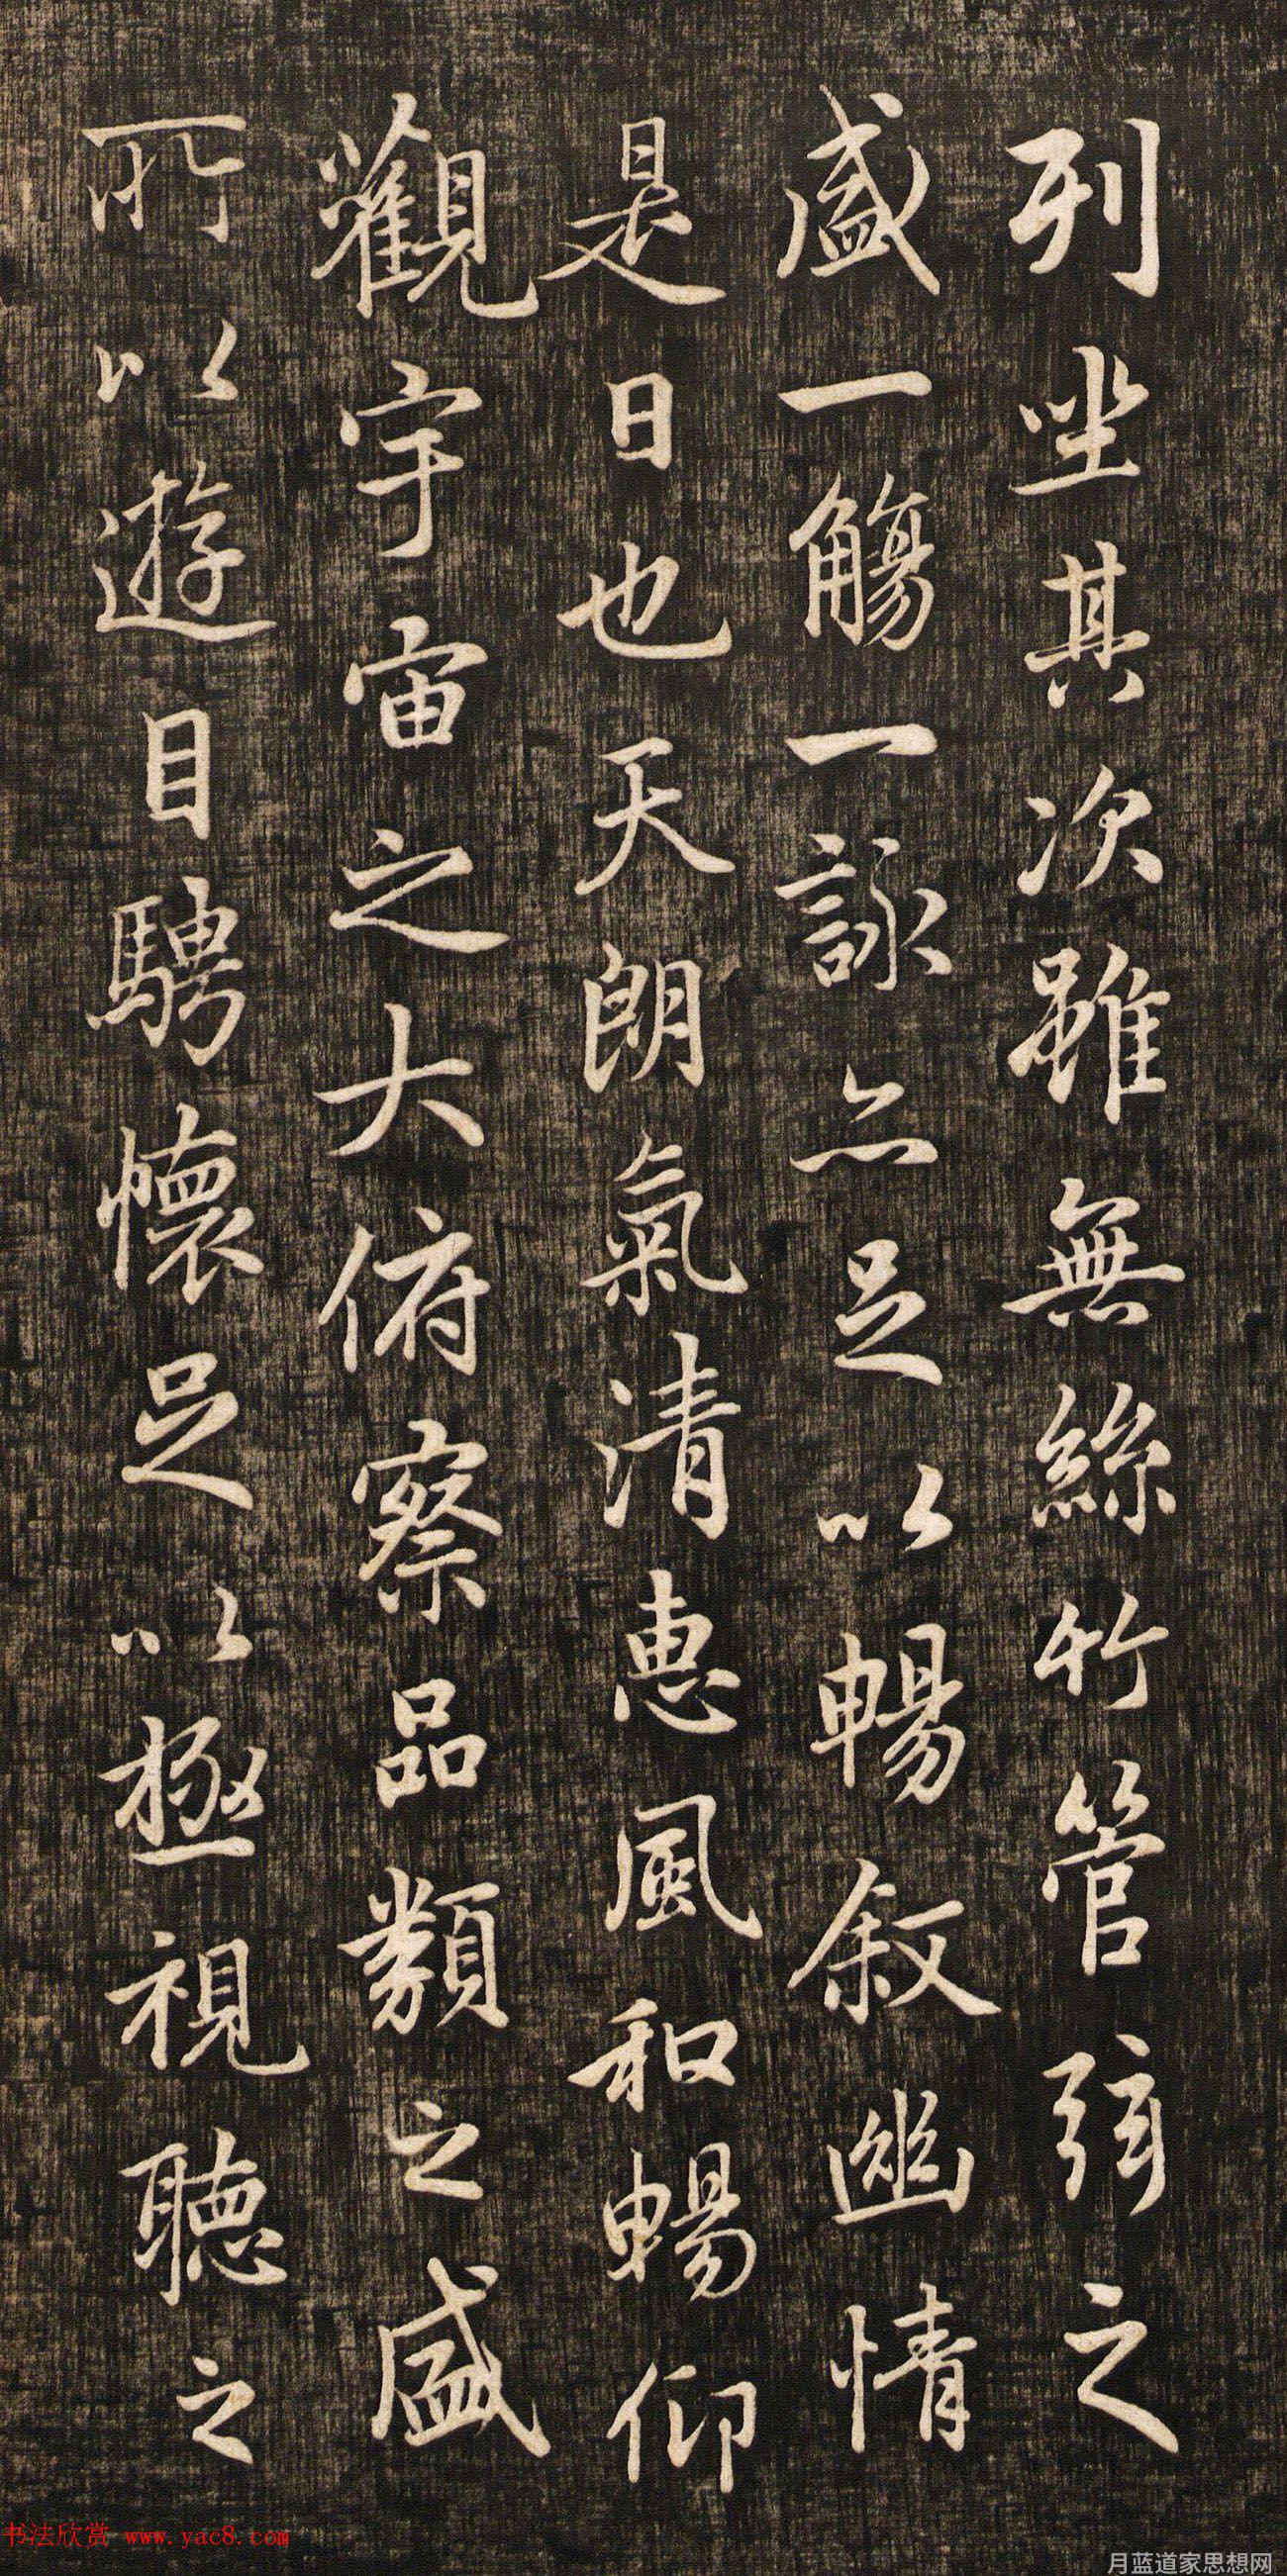 列坐其次雖無絲竹管弦之
盛一觴一詠亦足以暢叙幽情
是日也天朗氣清惠風和暢仰
觀宇宙之大俯察品類之盛
所以遊目騁懷足以極視聽之
书法欣赏 www.yac8.com
月蓝道家思想网